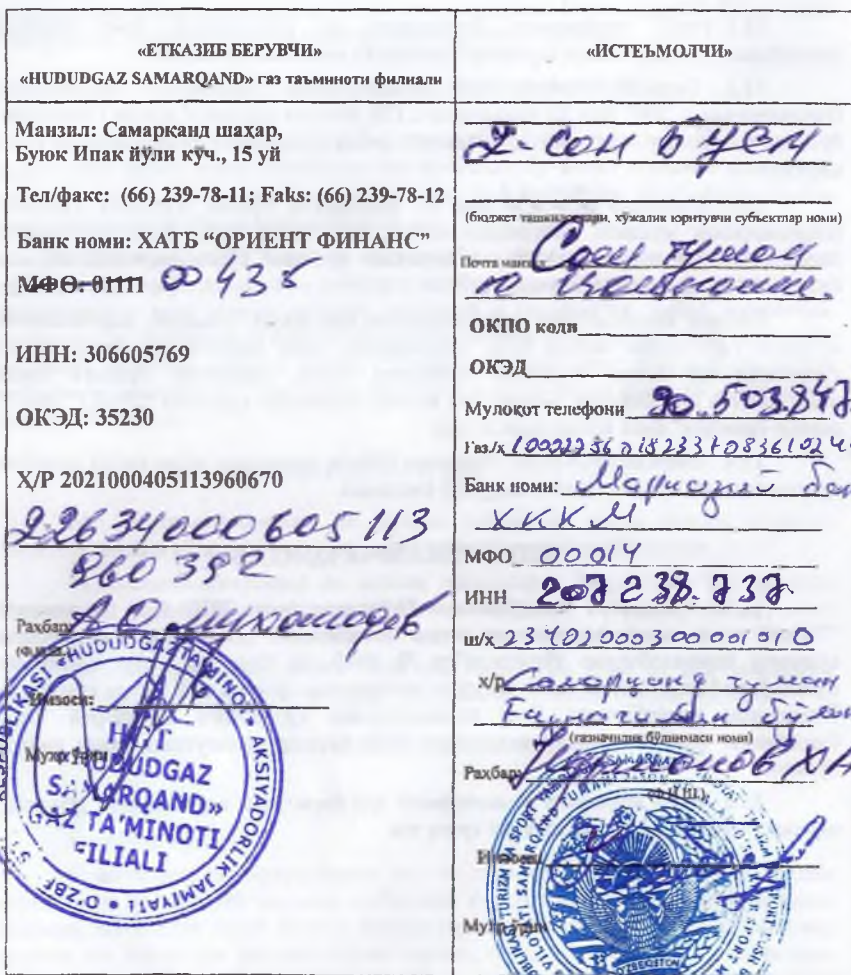 «ЕТКАЗИБ БЕРУВЧИ»
«HUDUDGAZ SAMARQAND» газ таъминоти филиали
Манзил: Самарқанд шаҳар,
Буюк Ипак йўли кўч., 15 уй
Тел/факс: (66) 239-78-11; Faks: (66) 239-78-12
Банк номи: ХАТБ “ОРИЕНТ ФИНАНС”
МФО: 01111
ИНН: 306605769
ОКЭД: 35230
Ҳ/Р 2021000405113960670
22634000605113
960 398
Раҳбар
(Ф.И.Ш.)
Имзоси:
Муҳр ўрни
«HUDUDGAZTA'MINOT» AKSIYADORLIK JAMIYATI
HGT
«HUDUDGAZ
SAMARQAND»
GAZ TA'MINOTI
FILIALI
«ИСТЕЪМОЛЧИ»
2-сон БЎСМ
(бюджет ташкилотлари, хўжалик юритувчи субъектлар номи)
Почта манзил
ОКПО коди
ОКЭД
Мулоқот телефони 90.503.847
Ғаз./х
Банк номи: Марказий бан
ХККМ
МФО 00014
ИНН 207 238.737
ш/х 23402000300001010
х/р Самарқанд туман
(газначилик бўлинмаси номи)
Раҳбар
(Ф.И.Ш.)
Имзоси
Муҳр ўрни